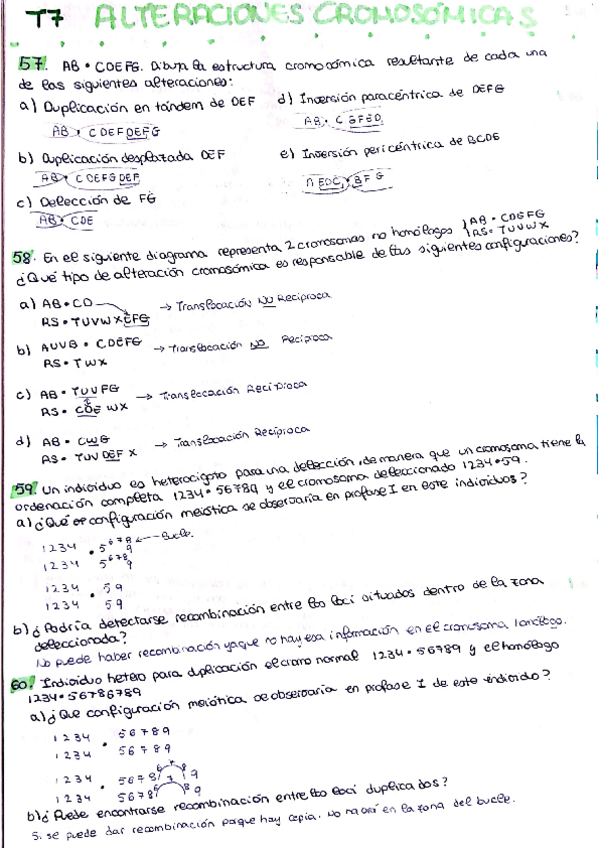 T7 ALTERACIONES CROMOSÓMICAS
57. AB • CDEFG. Dibuja la estructura cromosómica resultante de cada una
de las siguientes alteraciones:
a) Duplicación en tándem de DEF
AB • CDEFDEFG
d) Inversión paracéntrica de DEFG
AB • C GFED
b) Duplicación desplazada DEF
AB • CDEFGDEF
e) Inversión pericéntrica de BCDE
A EDC • BFG
c) Delección de FG
AB • CDE
58. En el siguiente diagrama representa 2 cromosomas no homólogos { AB • CDEFG
RS • TUVWX
¿Qué tipo de alteración cromosómica es responsable de las siguientes configuraciones?
a) AB • CD → Translocación NO Recíproca
RS • TUVWXEFG
b) AUVB • CDEFG → Translocación NO Recíproca
RS • TWX
c) AB • TUVFG → Translocación Recíproca
RS • CDE WX
d) AB • CWG → Translocación Recíproca
RS • TUV DEF X
59. Un individuo es heterocigoto para una delección, de manera que un cromosoma tiene la
ordenación completa 1234 • 56789 y el cromosoma deleccionado 1234 • 59.
a) ¿Qué configuración meiótica se observaría en profase I en este individuos?
1234 • 5 678 9 ← --- Bucle.
1234 5 678 9
1234 • 59
1234 59
b) ¿Podría detectarse recombinación entre los loci situados dentro de la zona
deleccionada?
No puede haber recombinación ya que no hay esa información en el cromosoma homólogo.
60. Individuo hetero para duplicación el cromo normal 1234 • 56789 y el homólogo
1234 • 56786789
a) ¿Que configuración meiótica se observaría en profase I de este individuo?
1234 • 56789
1234 56789
1234 • 5678 6 7 8 9
1234 5678 9
b) ¿Puede encontrarse recombinación entre los loci duplicados?
Si se puede dar recombinación porque hay copia. No en la zona del bucle.